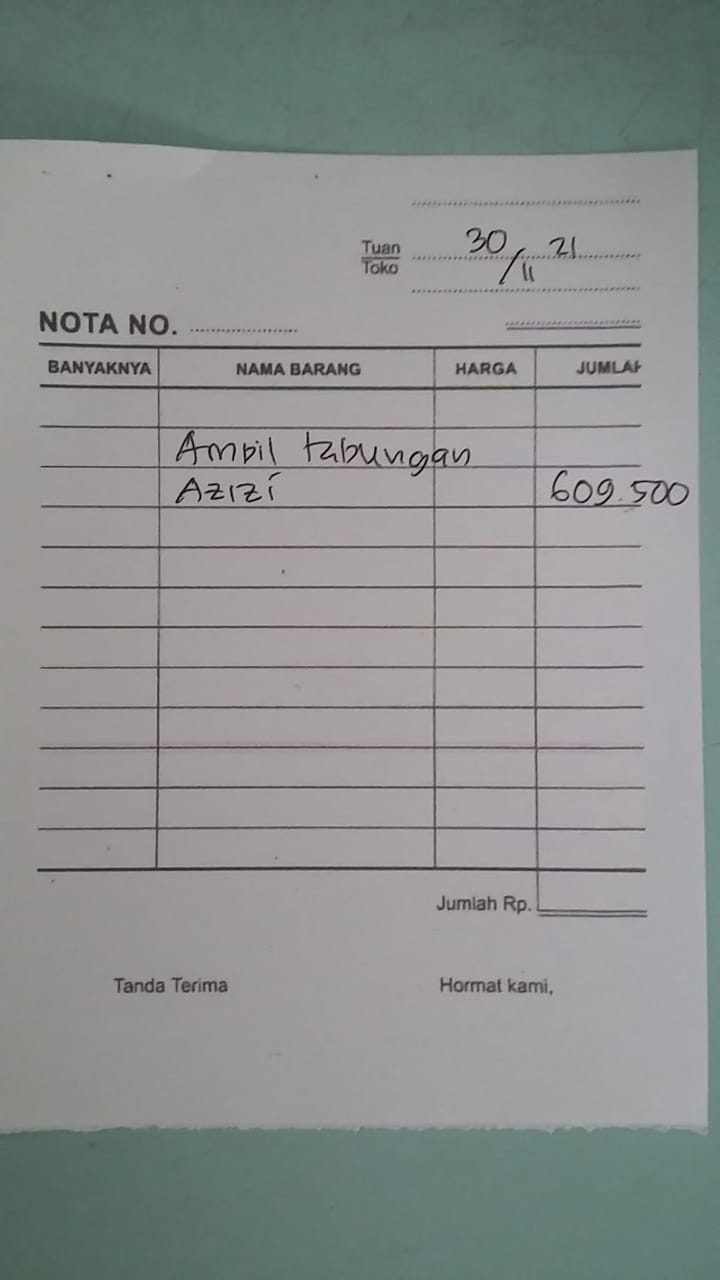 Tuan
Toko
30/11 21
NOTA NO.
BANYAKNYA NAMA BARANG HARGA JUMLAH
Ambil tabungan
Azizi 609.500
Jumlah Rp.
Tanda Terima Hormat kami,